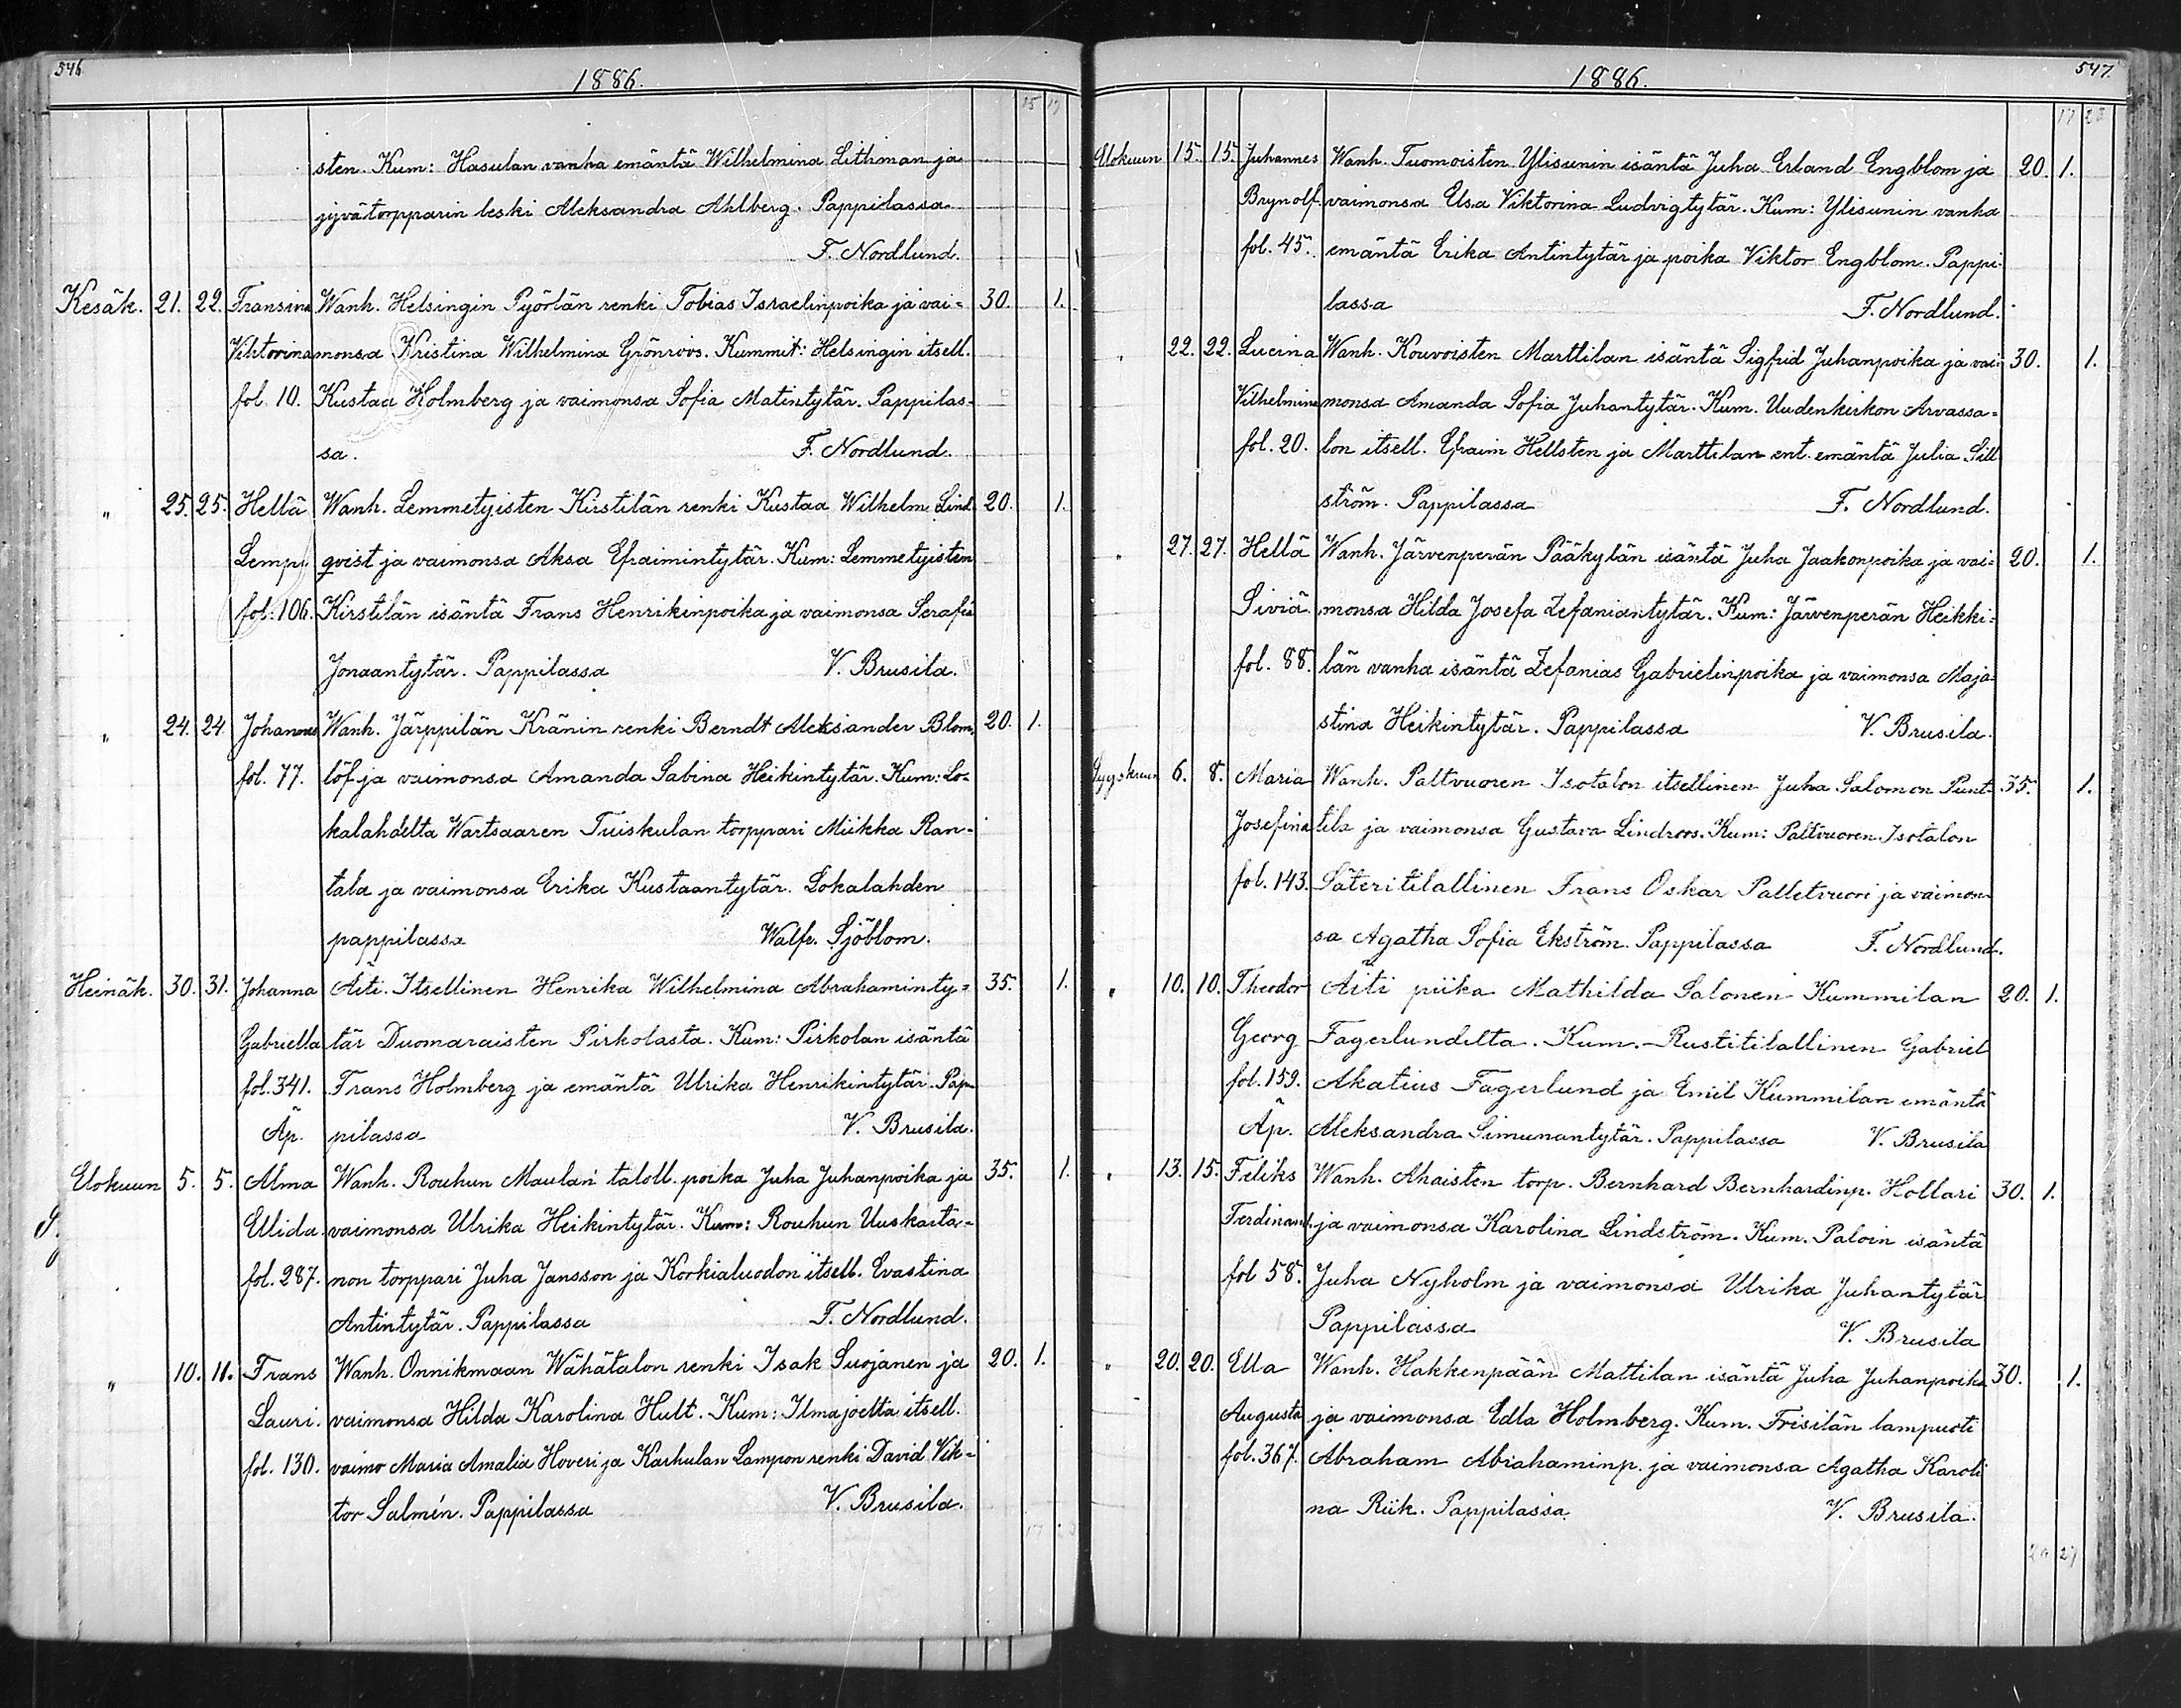 546
1886.
15 17
sten. Kum: Hasulan vanha emäntä Wilhelmina Lithman ja
jyvätorpparin leski Aleksandra Ahlberg. Pappilassa
F. Nordlund.
Kesäk. 21. 22. Fransina Wanh. Helsingin Pyörlän renki Tobias Israelinpoika ja vai= 30. 1.
Viktorina monsa Kristina Wilhelmina Grönroos. Kummit: Helsingin itsell.
fol. 10. Kustaa Holmberg ja vaimonsa Sofia Matintytär. Pappilas-
sa. F. Nordlund.
" 25. 25. Hellä Wanh. Lemmetyisten Kirstilän renki Kustaa Wilhelm Lind 20. 1.
Lempi qvist ja vaimonsa Aksa Efraimintytär. Kum: Lemmetyisten
fol. 106. Kirstilän isäntä Frans Henrikinpoika ja vaimonsa Serafia
Jonaantytär. Pappilassa V. Brusila.
" 24. 24. Johannes Wanh. Järppilän Kränin renki Berndt Aleksander Blom, 20. 1.
fol. 77. löf ja vaimonsa Amanda Sabina Heikintytär. Kum: Lo-
kalahdelta Wartsaaren Tuiskulan torppari Miikka Ran-
tala ja vaimonsa Erika Kustaantytär. Lokalahden
pappilassa Walfr. Sjöblom.
Heinäk. 30. 31. Johanna Äiti. Itsellinen Henrika Wilhelmina Abrahaminty= 35. 1.
Gabriella tär Duomaraisten Pirkolasta. Kum: Pirkolan isäntä
fol. 341. Frans Holmberg ja emäntä Ulrika Henrikintytär. Pap
Äp. pilassa V. Brusila.
Elokuun 5. 5. Alma Wanh. Rouhun Maulan taloll. poika Juha Juhanpoika ja 35. 1.
Ellida vaimonsa Ulrika Heikintytär. Kum: Rouhun Uuskarta-
fol. 287. non torppari Juha Jansson ja Korkialuodon itsell. Evastina
Antintytär. Pappilassa F. Nordlund.
" 10. 11. Frans Wanh. Onnikmaan Wähätalon renki Isak Suojanen ja 20. 1.
Lauri. vaimonsa Hilda Karolina Hult. Kum: Ilmajoelta itsell.
fol. 130. vaimo Maria Amalia Hoveri ja Karhulan Lampon renki David Vik=
tor Salmén. Pappilassa V. Brusila.
547.
1886.
17 23
Elokuun 15. 15. Juhannes Wanh. Tuomoisten Ylisunin isäntä Juha Erland Engblom ja 20. 1.
Brynolf. vaimonsa Elsa Viktorina Ludvigtytär. Kum: Ylisunin vanha
fol. 45. emäntä Erika Antintytär ja poika Viktor Engblom. Pappi-
lassa F. Nordlund.
" 22. 22. Lucina Wanh. Kouvoisten Marttilan isäntä Sigfrid Juhanpoika ja vai- 30. 1.
Vilhelmina monsa Amanda Sofia Juhantytär. Kum. Uudenkirkon Arvassa=
fol. 20. lon itsell. Efraim Hellsten ja Marttilan ent. emäntä Julia Sill
ström. Pappilassa F. Nordlund.
" 27. 27. Hellä Wanh. Järvenperän Pääkylän isäntä Juha Jaakonpoika ja vai= 20. 1.
Siviä. monsa Hilda Josefa Zefaniantytär. Kum: Järvenperän Heikki=
fol. 88. län vanha isäntä Zefanias Gabrielinpoika ja vaimonsa Maja
stina Heikintytär. Pappilassa V. Brusila.
Syyskuun 6. 8. Maria Wanh. Paltvuoren Isotalon itsellinen Juha Salomon Punt- 35. 1.
Josefina tila ja vaimonsa Gustava Lindroos. Kum: Paltvuoren Isotalon
fol. 143. Säteritilallinen Frans Oskar Palletvuori ja vaimon
sa Agatha Sofia Ekström. Pappilassa F. Nordlund.
" 10. 10. Theodor Äiti piika Mathilda Salonen Kummilan 20. 1.
Georg Fagerlundilta. Kum. Rustitilallinen Gabriel
fol. 159. Akatius Fagerlund ja Emil Kummilan emäntä
Äp. Aleksandra Simunantytär. Pappilassa V. Brusila
" 13. 15. Feliks Wanh. Ahaisten torp. Bernhard Bernhardinp. Hollari 30. 1.
Ferdinand. ja vaimonsa Karolina Lindström. Kum. Paloin isäntä
fol 58. Juha Nyholm ja vaimonsa Ulrika Juhantytär
Pappilassa V. Brusila
" 20. 20. Ella Wanh. Hakkenpään Mattilan isäntä Juha Juhanpoika 30. 1.
Augusta ja vaimonsa Edla Holmberg. Kum. Frisilän lampuoti
fol. 367. Abraham Abrahaminp. ja vaimonsa Agatha Karoli
na Riik. Pappilassa V. Brusila.